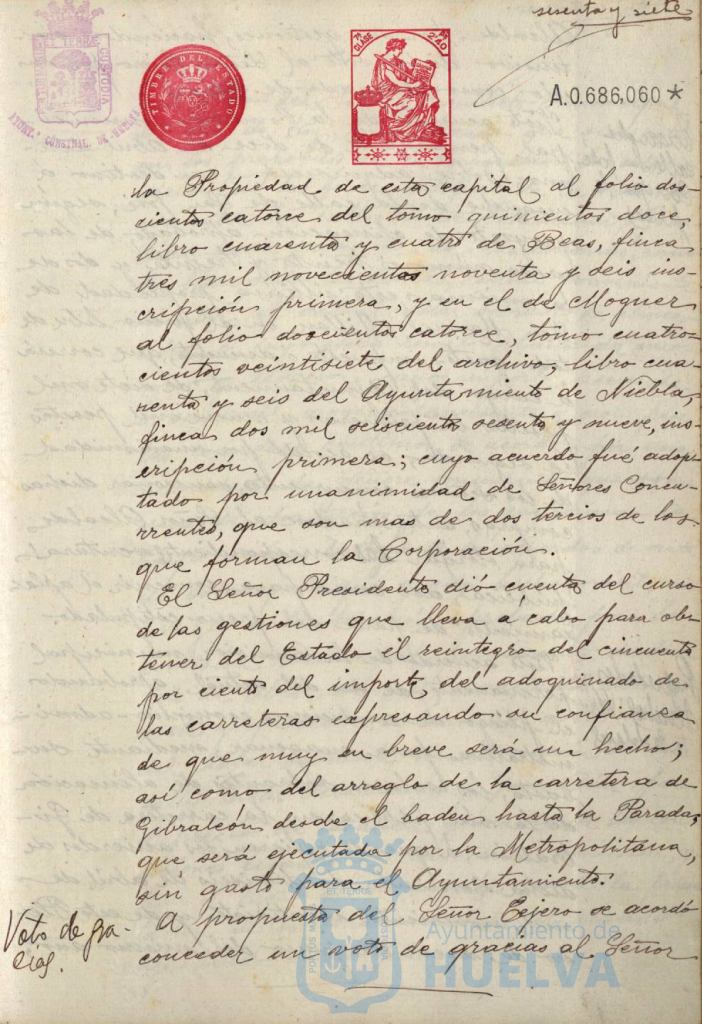 sesenta y siete
AYUNT.º CONSTNAL. DE HUELVA
TIMBRE DEL ESTADO
7ª CLASE
2,40
A.0.686,060*
la Propiedad de esta capital al folio dos-
cientos catorce del tomo quinientos doce,
libro cuarenta y cuatro de Beas, finca
tres mil novecientas noventa y seis ins-
cripción primera, y en el de Moguer
al folio doscientos catorce, tomo cuatro-
cientos veintisiete del archivo, libro cua-
renta y seis del Ayuntamiento de Niebla,
finca dos mil seiscienta sesenta y nueve, ins-
cripción primera; cuyo acuerdo fué adop-
tado por unanimidad de Señores Concu-
rrentes, que son mas de dos tercios de los
que forman la Corporación.
El Señor Presidente dió cuenta del curso
de las gestiones que lleva á cabo para ob-
tener del Estado el reintegro del cincuenta
por ciento del importe del adoquinado de
las carreteras expresando su confianza
de que muy en breve será un hecho;
así como del arreglo de la carretera de
Gibraleón desde el baden hasta la Parada,
que será ejecutada por la Metropolitana,
sin gasto para el Ayuntamiento.
Voto de gra-
cias.
A propuesta del Señor Tejero se acordó
conceder un voto de gracias al Señor
Ayuntamiento de
HUELVA